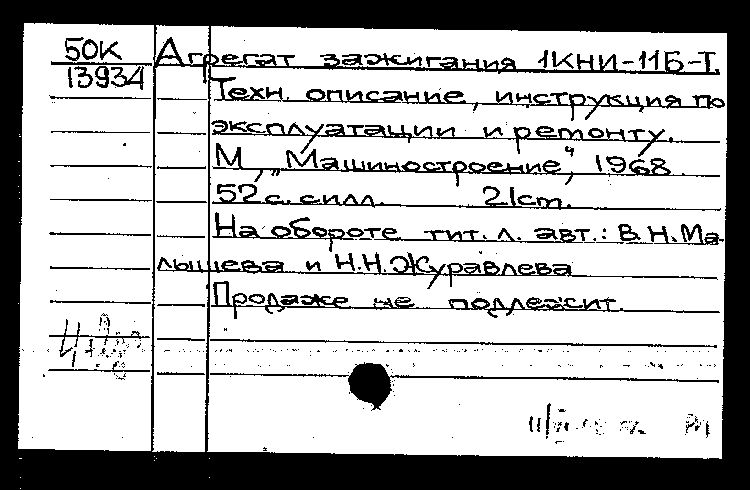 50К Агрегат зажигания 1КНИ-11Б-Т.
13934 Техн. описание, инструкция по
эксплуатации и ремонту.
М., „Машиностроение", 1968
52 с. с илл. 21cm.
На обороте тит. л. авт.: В.Н.Ма-
лышева и Н.Н.Журавлева
Продаже не подлежит.